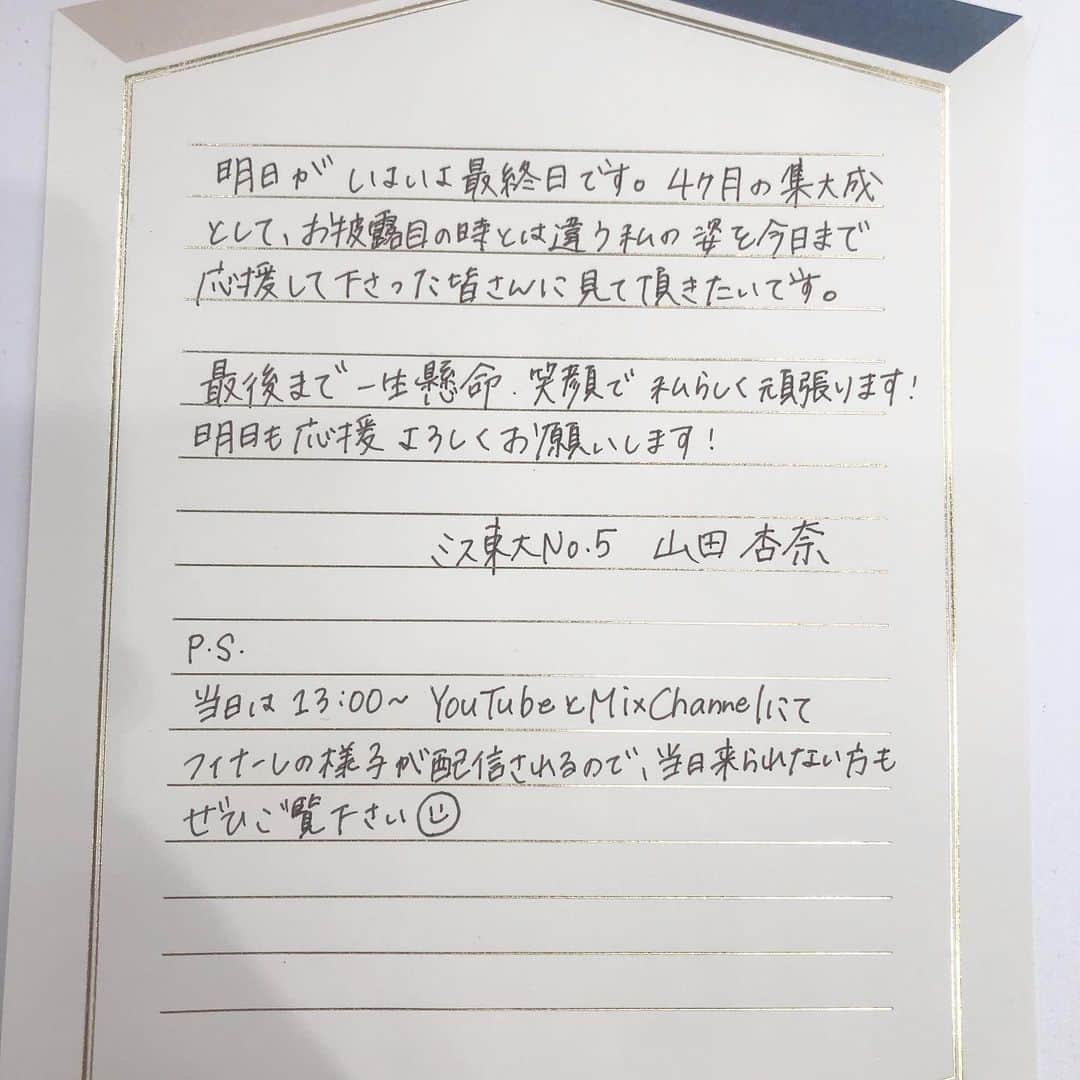 明日がいよいよ最終日です。4ヶ月の集大成
として、お披露目の時とは違う私の姿を今日まで
応援して下さった皆さんに見て頂きたいです。
最後まで一生懸命、笑顔で私らしく頑張ります!
明日も応援よろしくお願いします!
ミス東大No.5 山田杏奈
P.S.
当日は13:00~ YouTubeとMixChannelにて
フィナーレの様子が配信されるので、当日来られない方も
ぜひご覧下さい